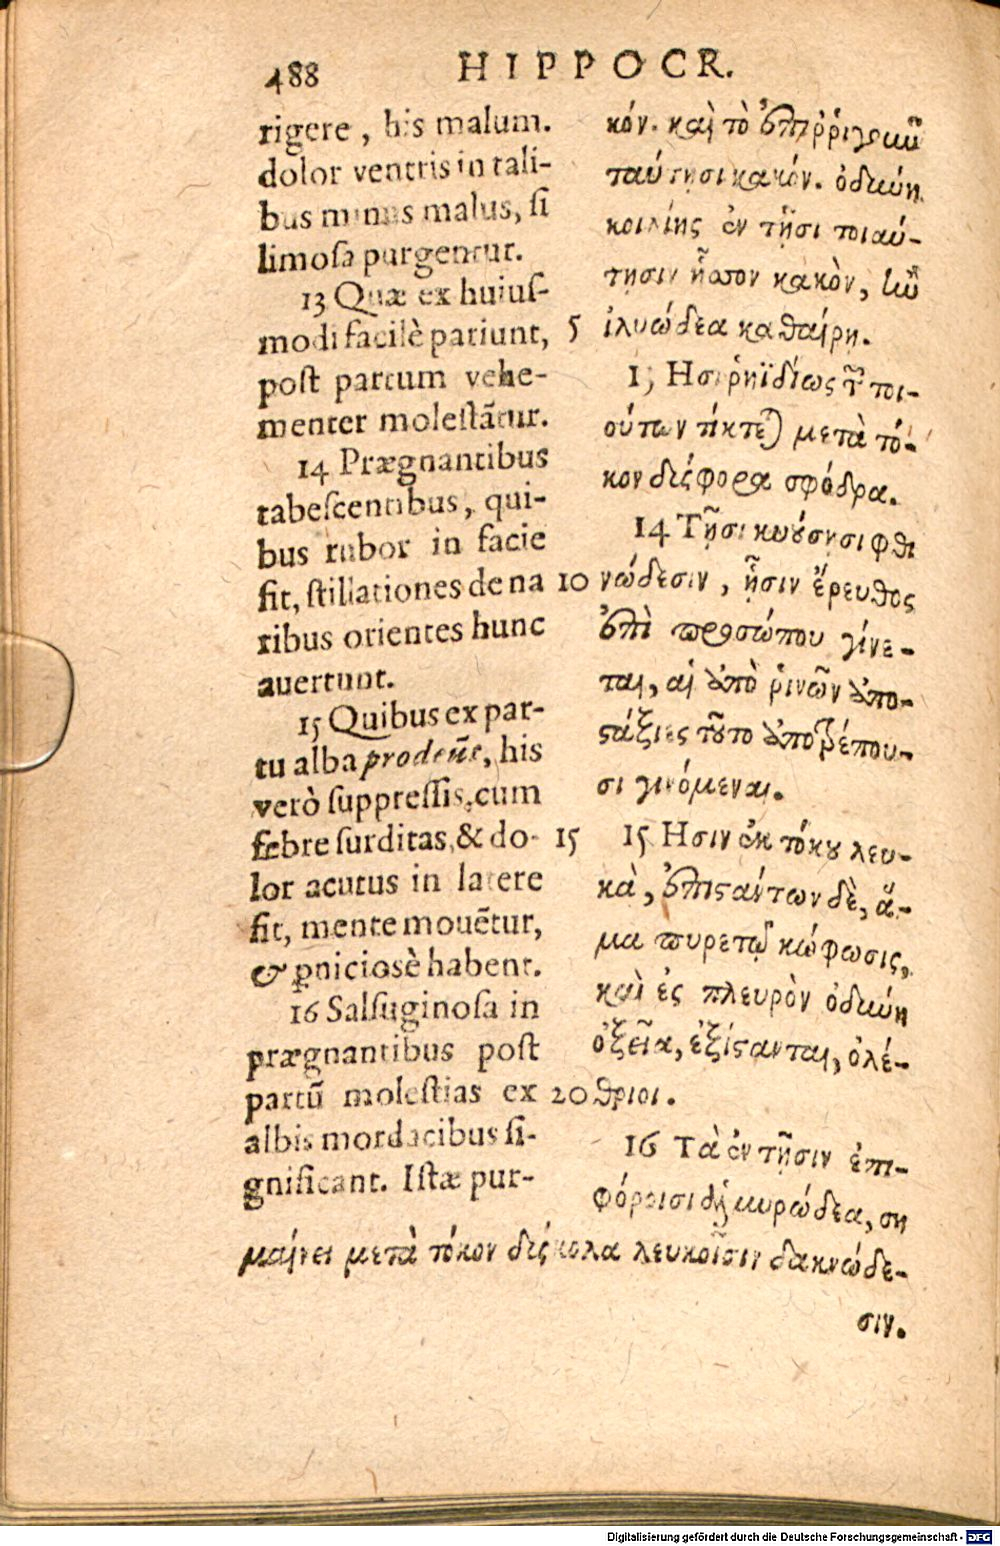 488 HIPPOCR.
rigere, his malum.
dolor ventris in tali-
bus minus malus, ſi
limoſa purgentur.
13 Quæ ex huiuſ-
modi facilè pariunt,
poſt partum vehe-
menter moleſtãtur.
14 Prægnantibus
tabeſcentibus, qui-
bus rubor in facie
fit, ſtillationes de na
ribus orientes hunc
auertunt.
15 Quibus ex par-
tu alba prodeũt, his
verò ſuppreſſis, cum
febre ſurditas, & do-
lor acutus in latere
fit, mente mouẽtur,
& ꝑniciosè habent.
16 Salſuginoſa in
prægnantibus poſt
partũ moleſtias ex
albis mordacibus ſi-
gnificant. Iſtæ pur-
5
10
15
20
κόν. καὶ τὸ ἐπιῤῥιγοῦν
ταύτῃσι κακόν. ὀδύνη
κοιλίης ἐν τῇσι τοιαύ-
τῃσιν ἧσσον κακὸν, ἢν
ἰλυώδεα καθαίρῃ.
13 Ησι ῥηϊδίως ἐκ τοι-
ούτων τίκτεται μετὰ τό-
κον δύςφορα σφόδρα.
14 Τῇσι κυούσῃσι φθι
νώδεσιν, ᾗσιν ἔρευθος
ἐπὶ προσώπου γίνε-
ται, αἱ ἀπὸ ῥινῶν ἀπο-
στάξιες τοῦτο ἀποτρέπου-
σι γινόμεναι.
15 Ησιν ἐκ τόκου λευ-
κὰ, ἐπιστάντων δὲ, ἅ-
μα πυρετῷ κώφωσις,
καὶ ἐς πλευρὸν ὀδύνη
ὀξεῖα, ἐξίστανται, ὀλέ-
θριοι.
16 Τὰ ἐν τῇσιν ἐπι-
φόροισι ἁλμυρώδεα, ση
μαίνει μετὰ τόκον δύςκολα λευκοῖσιν δακνώδε-
σιν.
Digitalisierung gefördert durch die Deutsche Forschungsgemeinschaft - DFG